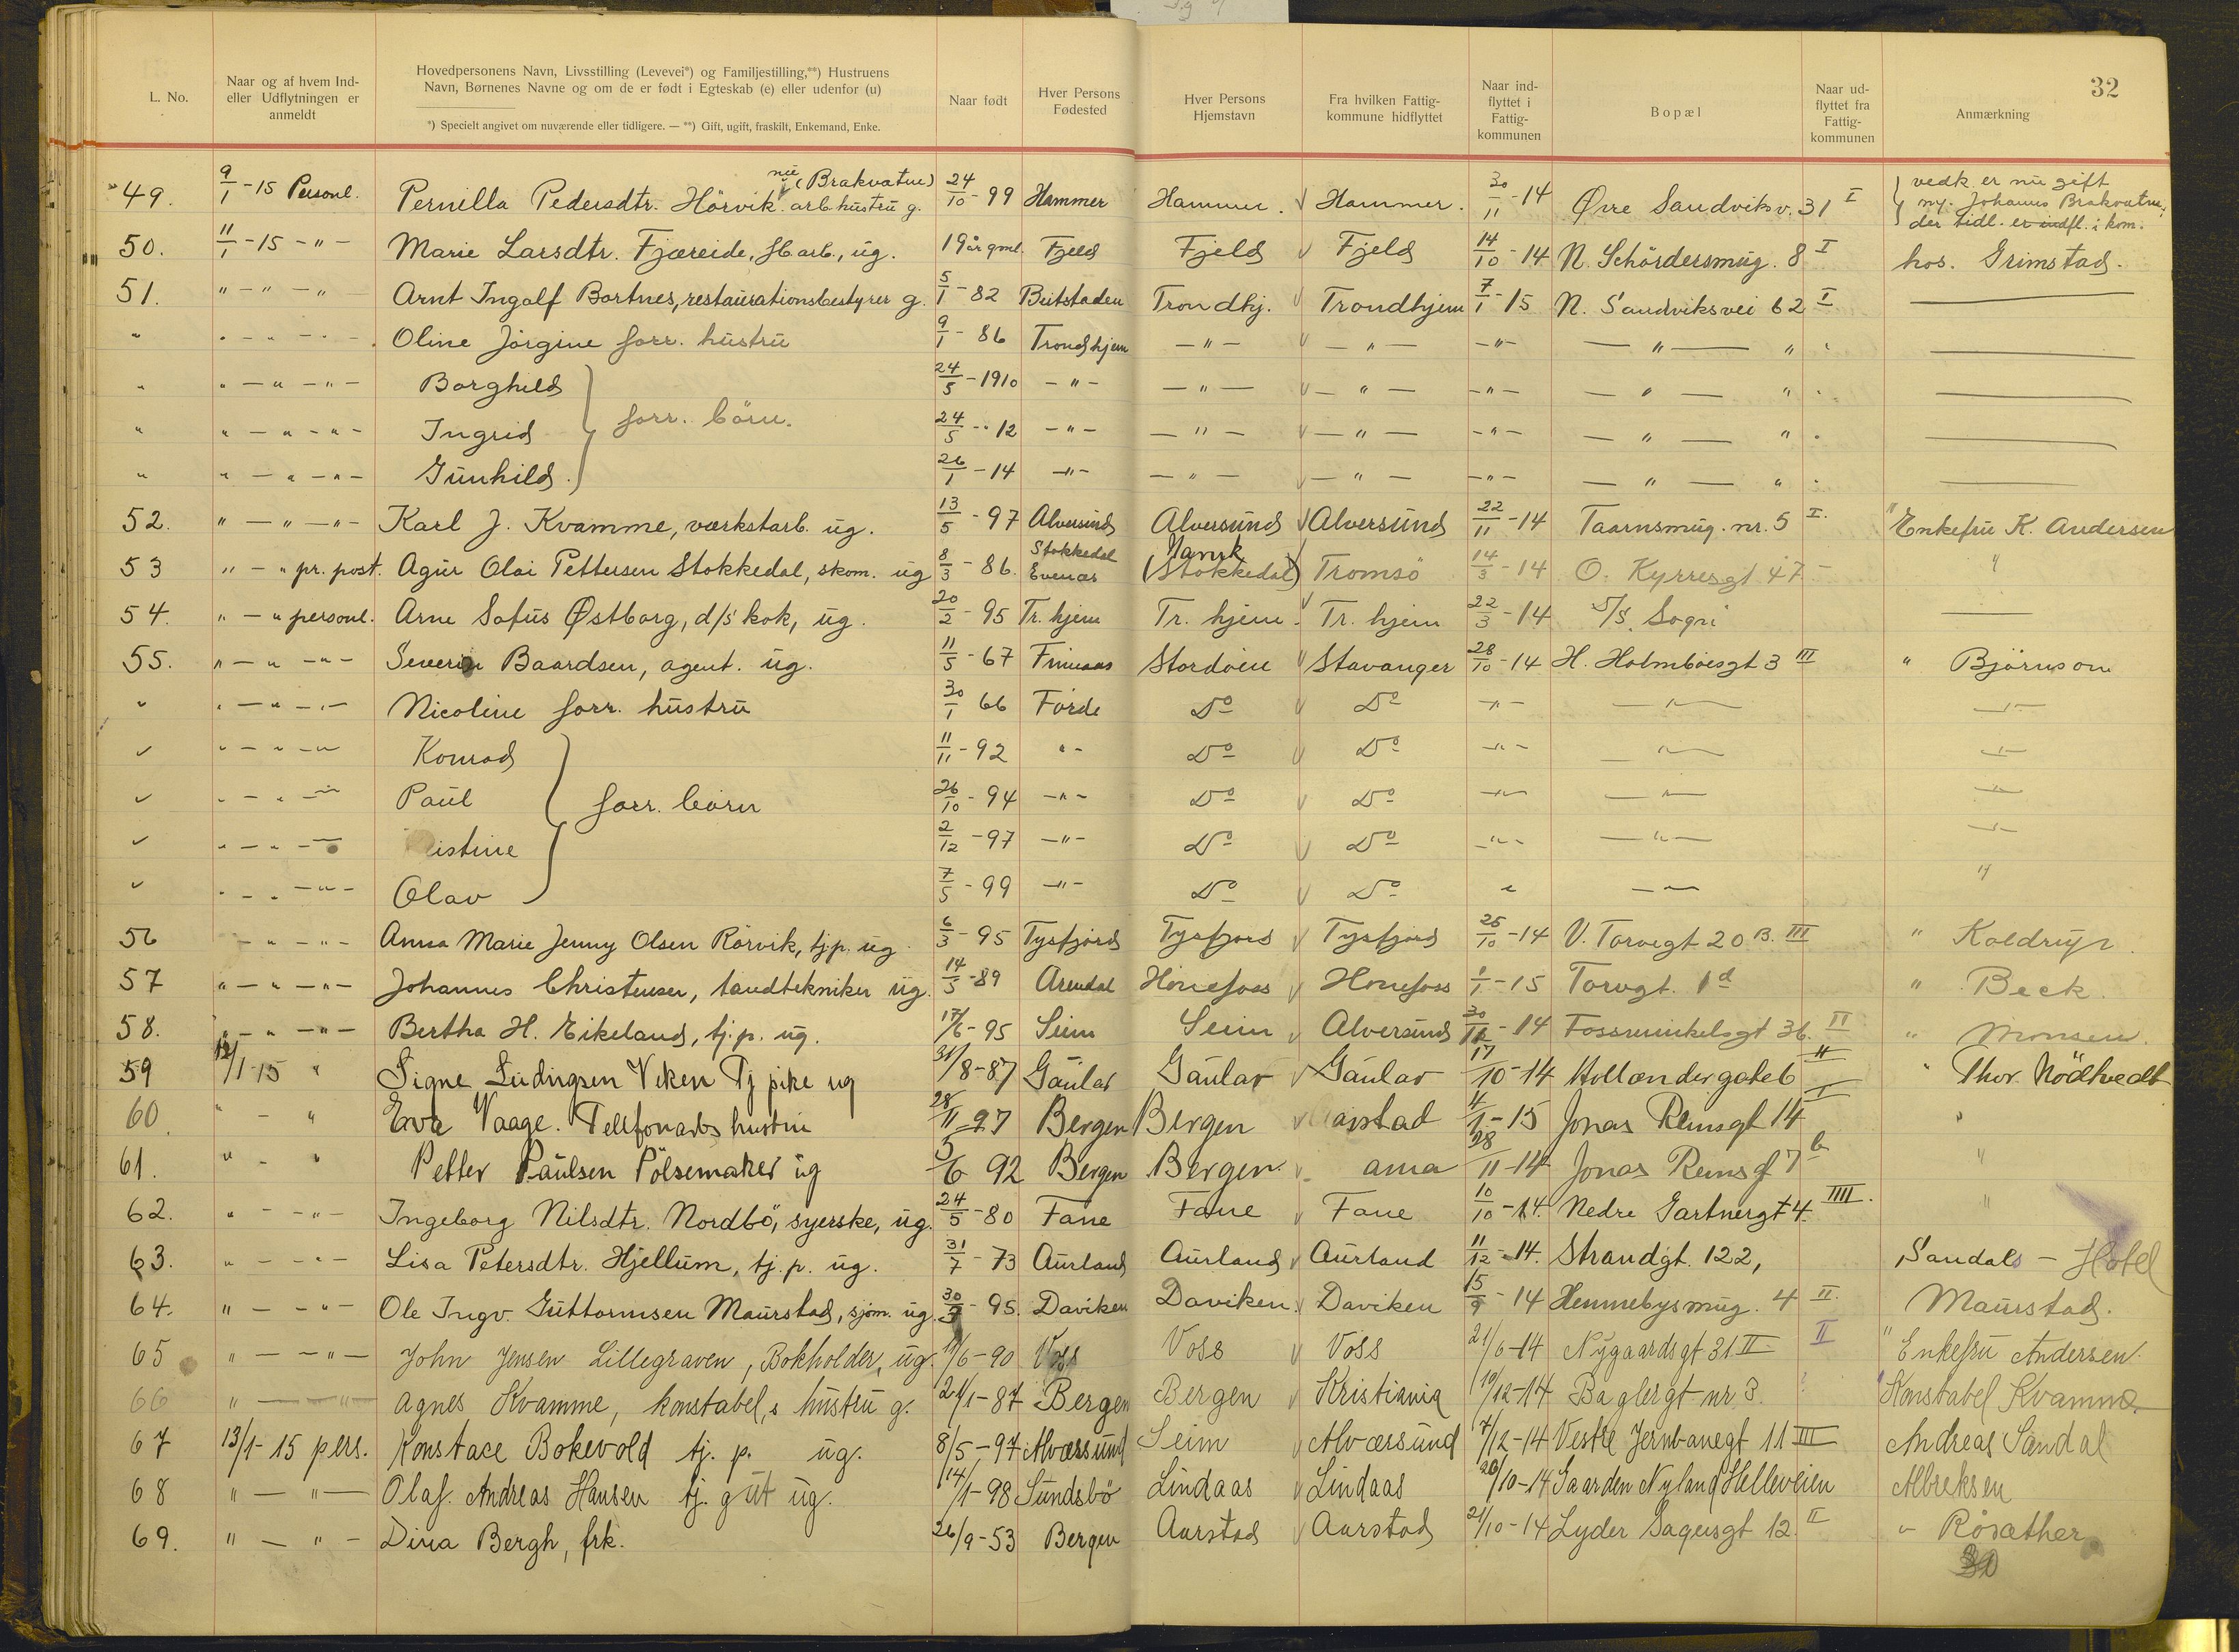 32
L. No.
Naar og af hvem Ind- eller Udflytningen er anmeldt
Hovedpersonens Navn, Livsstilling (Levevei*) og Familjestilling,**) Hustruens Navn, Børnenes Navne og om de er født i Egteskab (e) eller udenfor (u)
*) Specielt angivet om nuværende eller tidligere. — **) Gift, ugift, fraskilt, Enkemand, Enke.
Naar født
Hver Persons Fødested
Hver Persons Hjemstavn
Fra hvilken Fattigkommune hidflyttet
Naar indflyttet i Fattigkommunen
Bopæl
Naar udflyttet fra Fattigkommunen
Anmærkning
49. 9/1-15 Personl. Pernilla Pedersdtr. Hörvik nu (Brakvatne) arb. hustru g. 24/10-99 Hammer Hammer. Hammer. 30/11-14 Øvre Sandviksv. 31 I vedk. er nu gift m/. Johanus Brakvatne, der tidl. er indfl. i kom.
50. 11/1-15 -"- Marie Larsdtr. Fjæreide, fb. arb., ug. 19 år gml. Fjeld Fjeld Fjeld 14/10-14 N. Schördersmug. 8 I hos. Grimstad.
51. "-"-" Arnt Ingolf Bortnes, restaurationsbestyrer g. 5/1-82 Beitstaden Trondhj. Trondhjem 7/1-15 N. Sandviksvei 62 I —
" "-"-" Oline Jörgine forr. hustru 9/1-86 Trondhjem -"- -"- -"- -"- " —
" "-"-"- Borghild 24/5-1910 -"- -"- -"- -"- -"- " —
" "-"-"- Ingrid forr. börn. 24/5-12 -"- -"- -"- -"- -"- " —
" "-"-"- Gunhild. 26/1-14 -"- -"- -"- -"- -"- " —
52. "-"-"- Karl J. Kvamme, værkstarb. ug. 13/5-97 Alversund Alversund Alversund 22/11-14 Taarnsmug. nr. 5 I. " Enkefru K. Andersen
53 "-" pr. post. Agur Olai Pettersen Stokkedal, skom. ug 8/3-86. Stokkedal Evenæs (Stokkedal) Tromsö 14/3-14 O. Kyrresgt 47 - "
54. "-" personl. Arne Sofus Østborg, d/s kok, ug. 20/2-95 Tr. hjem Tr. hjem. Tr. hjem 22/3-14 S/S. Sogni —
55. "-"-"- Severin Baardsen, agent. ug. 11/5-67 Finnaas Stordöen Stavanger 28/10-14 H. Holmboesgt 3 III " Björnson
" "-"-"- Nicoline forr. hustru 30/1 66 Förde Do Do -"- -"- -"-
" "-"-"- Konrad 11/11-92 "- Do Do -"- -"- -"-
" "-"-"- Paul forr. börn 26/10-94 -"- Do Do -"- -"- -"-
" "-"-"- istine 2/12-97 -"- Do Do -"- -"- -"-
" "-"-"- Olav 7/5-99 -"- Do Do " -"- "
56 -"-"- Anna Marie Jenny Olsen Rörvik, tjp. ug 6/3-95 Tysfjord Tysfjord Tysfjord 25/10-14 V. Torvegt 20 B. III " Koldrup.
57 "-"-"- Johannes Christensen, tandtekniker ug. 14/5-89 Arendal Hönefoss Hönefoss 1/1-15 Torvgt. 1 d " Beck.
58. "-"-"- Bertha H. Eikeland, tj. p. ug. 17/6-95 Seim Seim Alversund 30/12-14 Fosswinkelsgt 36. II " Monsen.
59 12/1-15 " Signe Ludvigsen Viken Tj pike ug 31/8-87 Gaular Gaular Gaular 17/10-14 Hollændergate 6 II " Thor. Nödtvedt
60. "-" Eva Vaage. Telefonarb hustru 28/11-97 Bergen Bergen 4/1-15 Jonas Reinsgt 14 I "
61. "-" Petter Paulsen Pölsemaker ug 5/6 92 Bergen Bergen. 28/11-14 Jonas Reinsg 7 b "
62. "--"- Ingeborg Nilsdtr. Nordbö, syerske, ug. 24/5-80 Fane Fane Fane 10/10-14. Nedre Gartnergt 4. IIII. "
63. "--"- Lisa Petersdtr. Hjellum, tj. p. ug. 31/7-73 Aurland Aurland Aurland 11/12-14. Strandgt. 122, Sandals - Hotel
64. "--"- Ole Ingv. Guttormsen Maurstad, sjöm. ug. 30/9-95. Daviken Daviken. Daviken 15/9-14 Hennebysmug. 4 II. Maurstad.
65 "--"- John Jensen Lillegraven, Bokholder, ug. 11/6-90 Voss Voss Voss 21/6-14 Nygaardsgt 31 II II " Enkefru Andersen.
66 "--"- Agnes Kvamme, konstabel,s hustru g. 21/1-87 Bergen Bergen Kristiania 10/12-14 Baglergt nr 3. Konstabel Kvamme
67 13/1-15 pers. Konstace Bokevold tj. p. ug. 8/5-97 Alværsund Seim Alværsund 7/12-14 Vestre Jernbanegt 11 III Andreas Sandal
68 "-"- Olaf. Andreas Hansen tj. gut ug. 14/1-98 Sundsbö Lindaas Lindaas 20/10-14 Gaarden Nyland Helleveien Albreksen
69. "-"- Dina Bergh, frk. 26/9-53 Bergen Aarstad Aarstad 21/10-14 Lyder Sagensgt 12. II " Rösæther
30